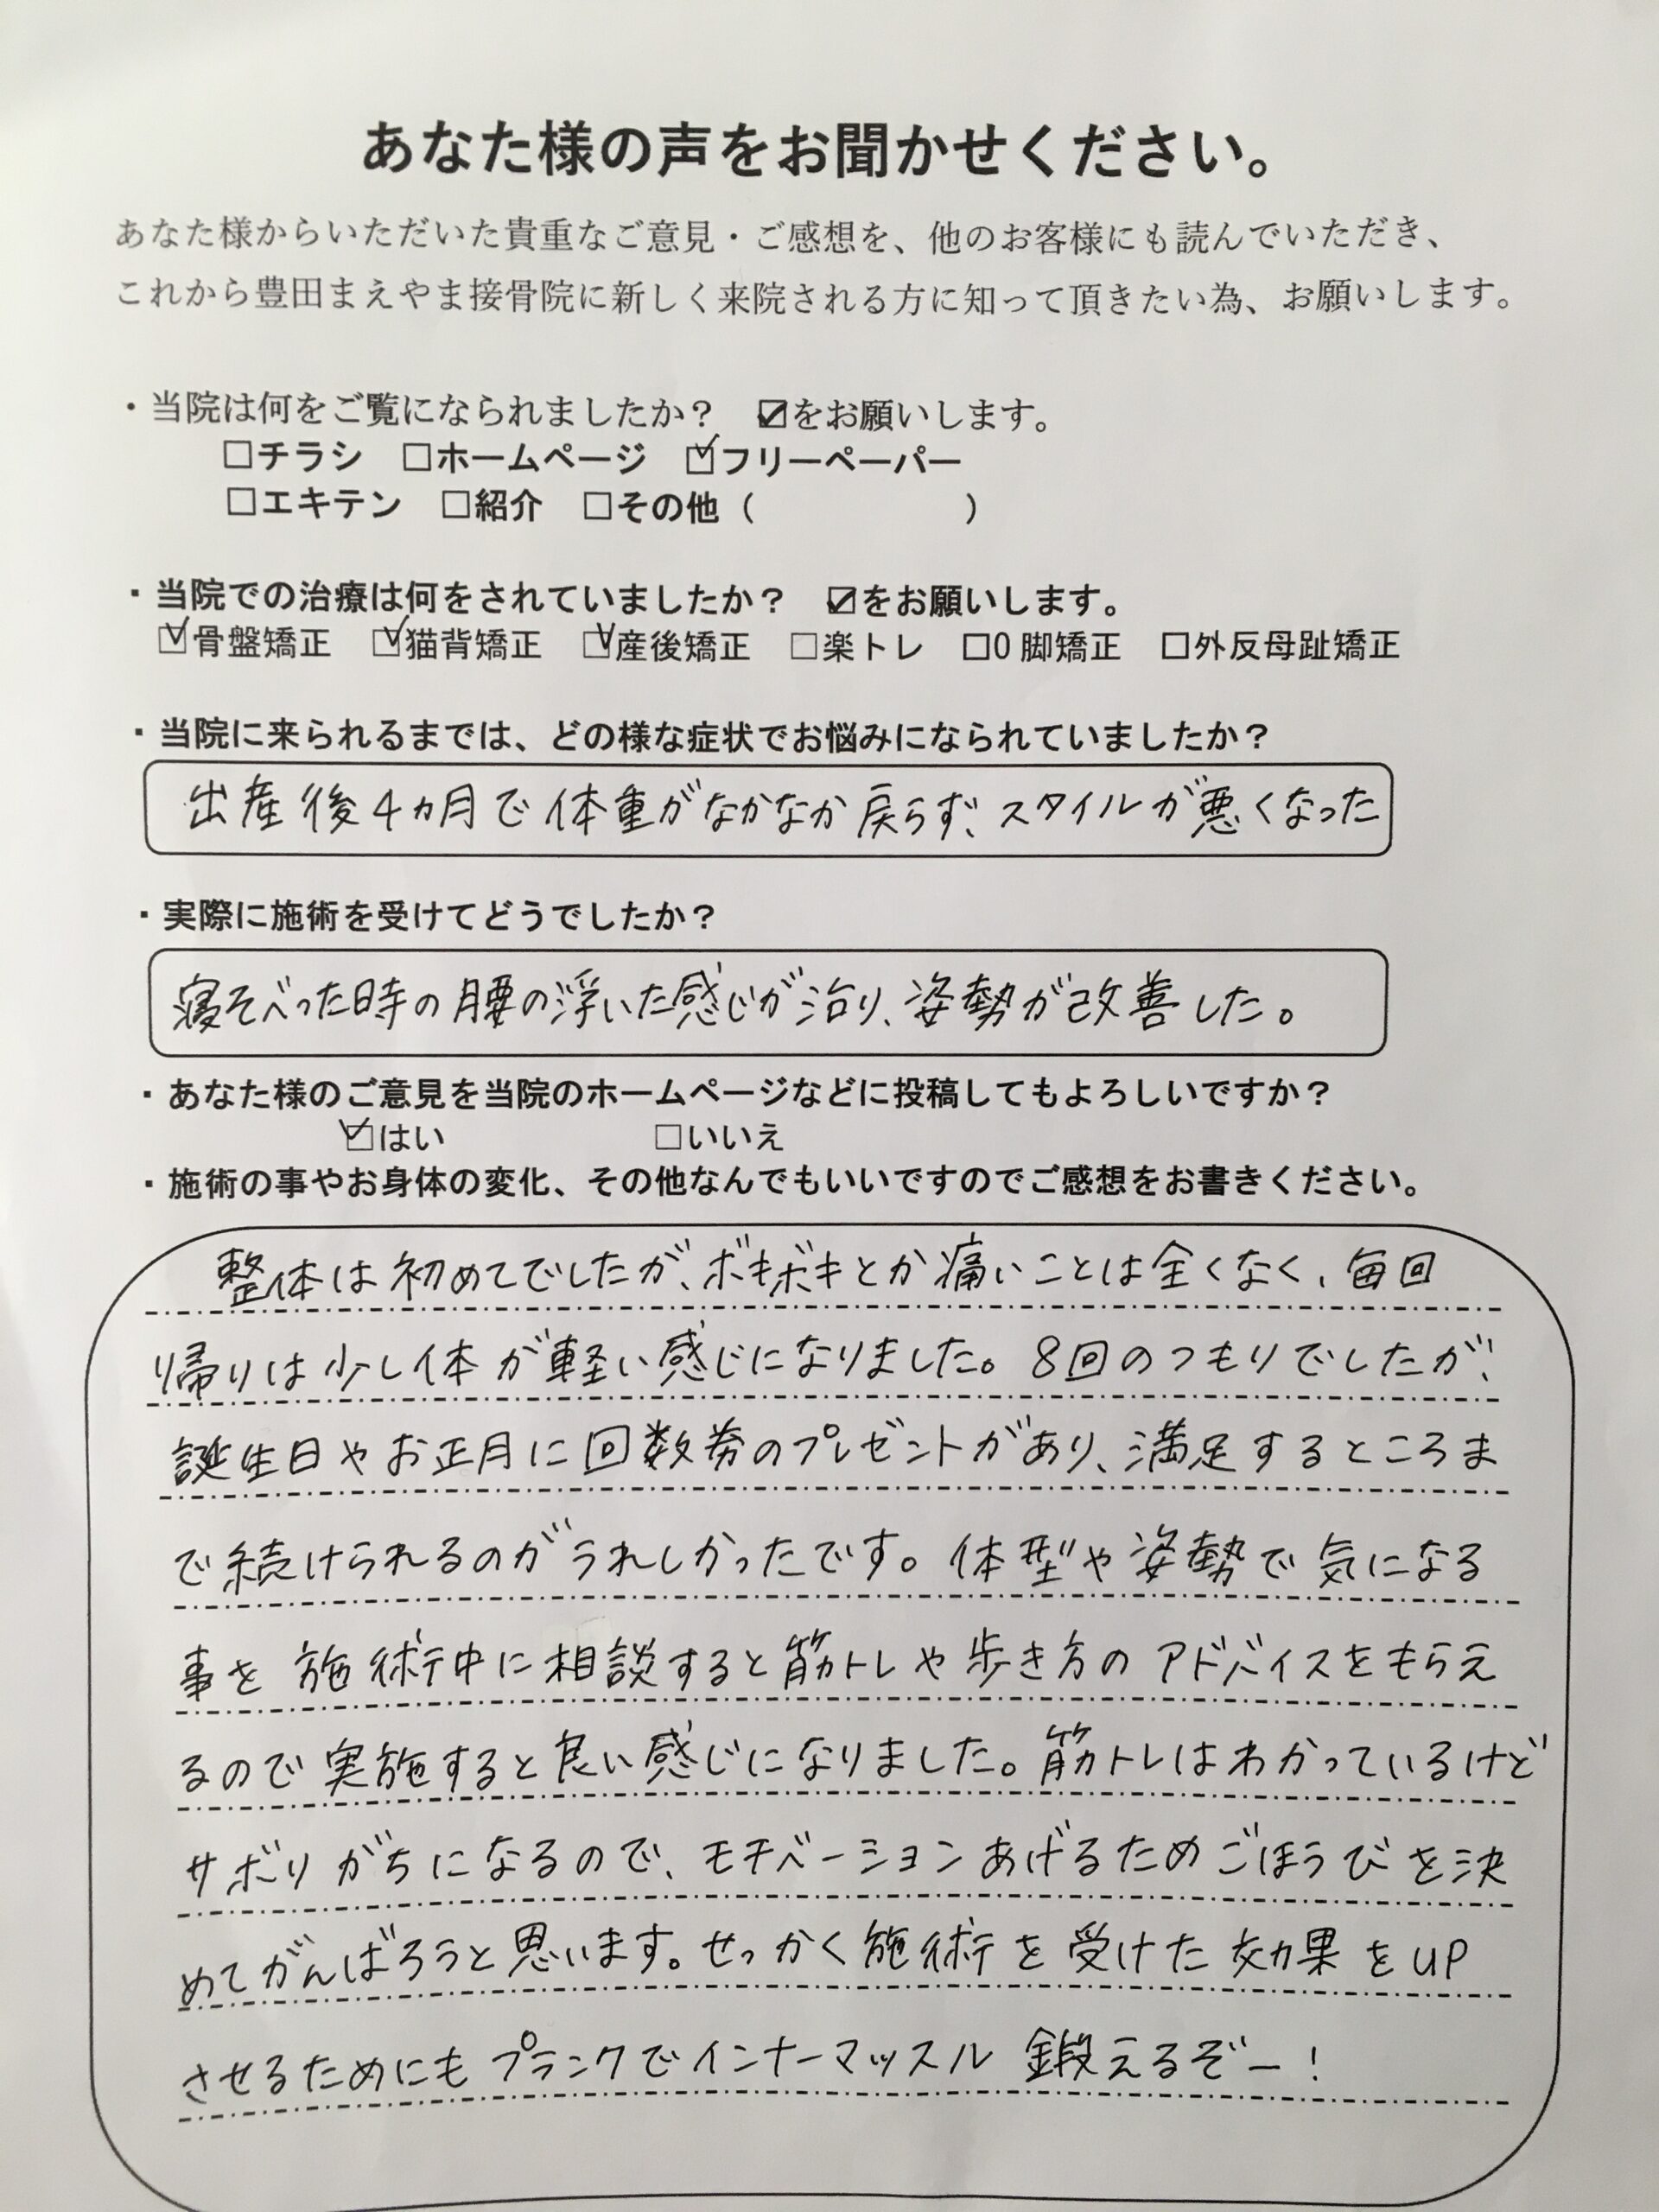 あなた様の声をお聞かせください。
あなた様からいただいた貴重なご意見・ご感想を、他のお客様にも読んでいただき、
これから豊田まえやま接骨院に新しく来院される方に知って頂きたい為、お願いします。
・当院は何をご覧になられましたか？ ☑をお願いします。
□チラシ □ホームページ ☑フリーペーパー
□エキテン □紹介 □その他（ ）
・当院での治療は何をされていましたか？ ☑をお願いします。
☑骨盤矯正 ☑猫背矯正 ☑産後矯正 □楽トレ □O脚矯正 □外反母趾矯正
・当院に来られるまでは、どの様な症状でお悩みになられていましたか？
出産後4ヵ月で体重がなかなか戻らず、スタイルが悪くなった
・実際に施術を受けてどうでしたか？
寝そべった時の腰の浮いた感じが治り、姿勢が改善した。
・あなた様のご意見を当院のホームページなどに投稿してもよろしいですか？
☑はい □いいえ
・施術の事やお身体の変化、その他なんでもいいですのでご感想をお書きください。
整体は初めてでしたが、ボキボキとか痛いことは全くなく、毎回
帰りは少し体が軽い感じになりました。8回のつもりでしたが、
誕生日やお正月に回数券のプレゼントがあり、満足するところま
で続けられるのがうれしかったです。体型や姿勢で気になる
事を施術中に相談すると筋トレや歩き方のアドバイスをもらえ
るので実施すると良い感じになりました。筋トレはわかっているけど
サボりがちになるので、モチベーションあげるためごほうびを決
めてがんばろうと思います。せっかく施術を受けた効果をUP
させるためにもプランクでインナーマッスル鍛えるぞー！